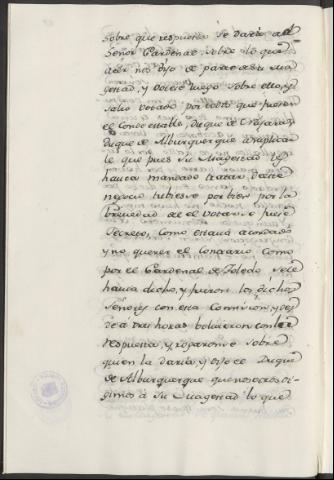 sobre que respuesta se daria al
Señor Cardenal, sobre lo que
acer nos dijo de parte de su Ma
gestad, y votose luego sobre ello, y
salio votado por votos que fuesen
el Condestable, Duque de y
Duque de Alburquerque a suplicar
le que pues su Magestad les
havia mandado tratar deste
negocio tubiese por bien por la
brevedad de el votarse fuese
secreto, como estava acordado
y no querer el contrario como
por el Cardenal de Toledo se le
havia dicho, y fueron los dichos
Señores con esta Comision, y des
de a dos horas bolvieron con la
respuesta, y rogaronse sobre
quien la daria, y dijo el Duque
de Alburquerque que nosotros di
gimos a Su Magestad lo que